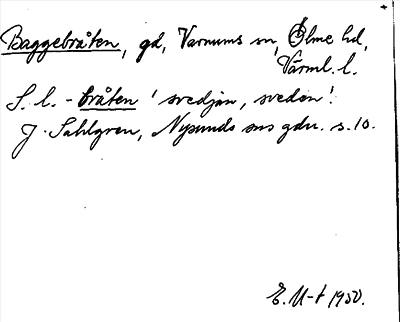 Baggebråten, gd, Varnums sn, Ölme hd,
Värml. l.
S. l. - bråten 'svedjan, sveden'.
J. Sahlgren, Nysunds sns gdn. s. 10.
E. U-t 1950.